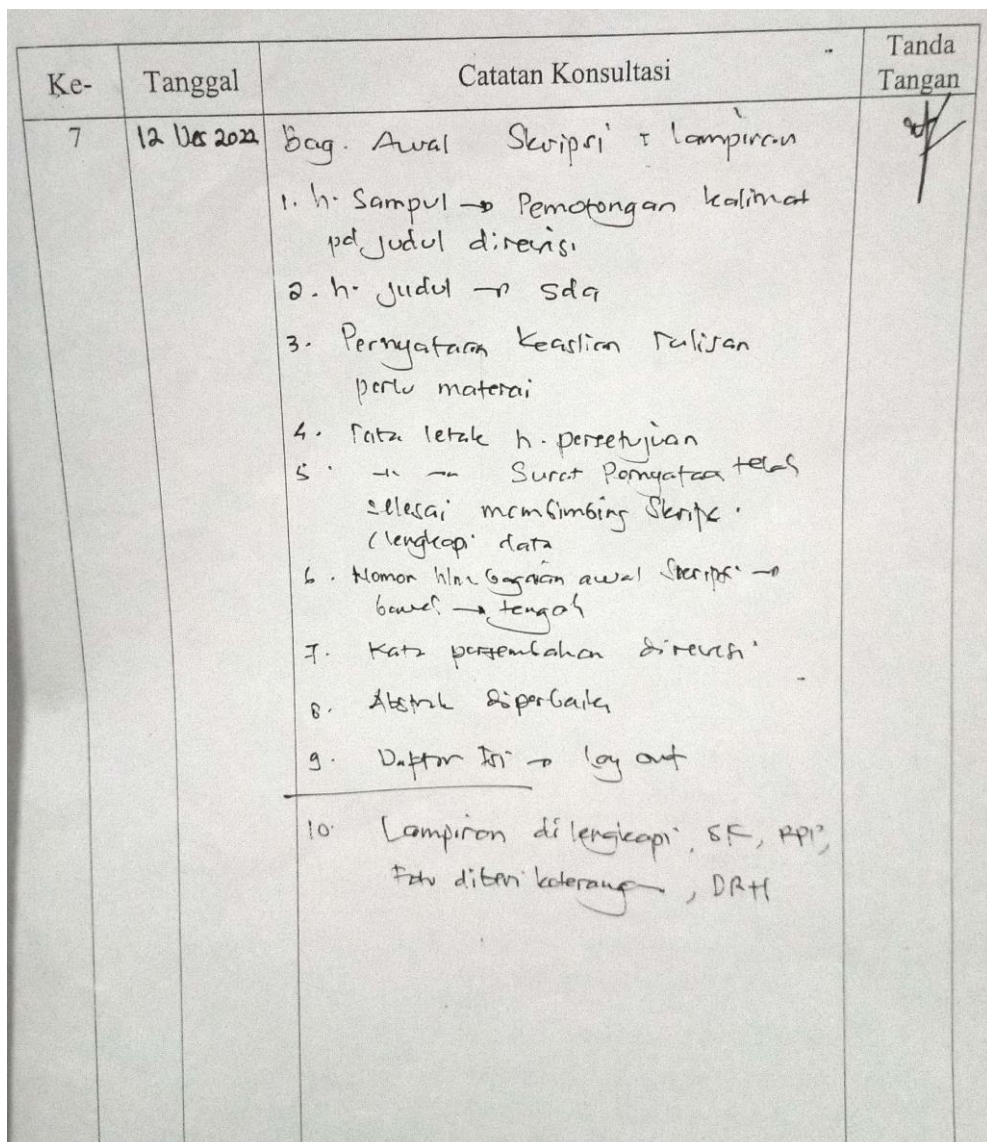 Ke- Tanggal Catatan Konsultasi Tanda Tangan
7 12 Des 2022 Bag. Awal Skripsi + lampiran
1. h. Sampul → Pemotongan kalimat
pd judul direvisi
2. h. judul → sda
3. Pernyataan Keaslian Tulisan
perlu materai
4. Tata letak h. persetujuan
5. Surat Pernyataan telah
selesai membimbing Skripsi.
(lengkapi data
6. Nomor hlm bagian awal Skripsi →
bawah → tengah
7. Kata persembahan direvisi
8. Abstrak diperbaiki
9. Daftar Isi → lay out
10. Lampiran dilengkapi, SK, RPP,
Foto diberi keterangan, DRH